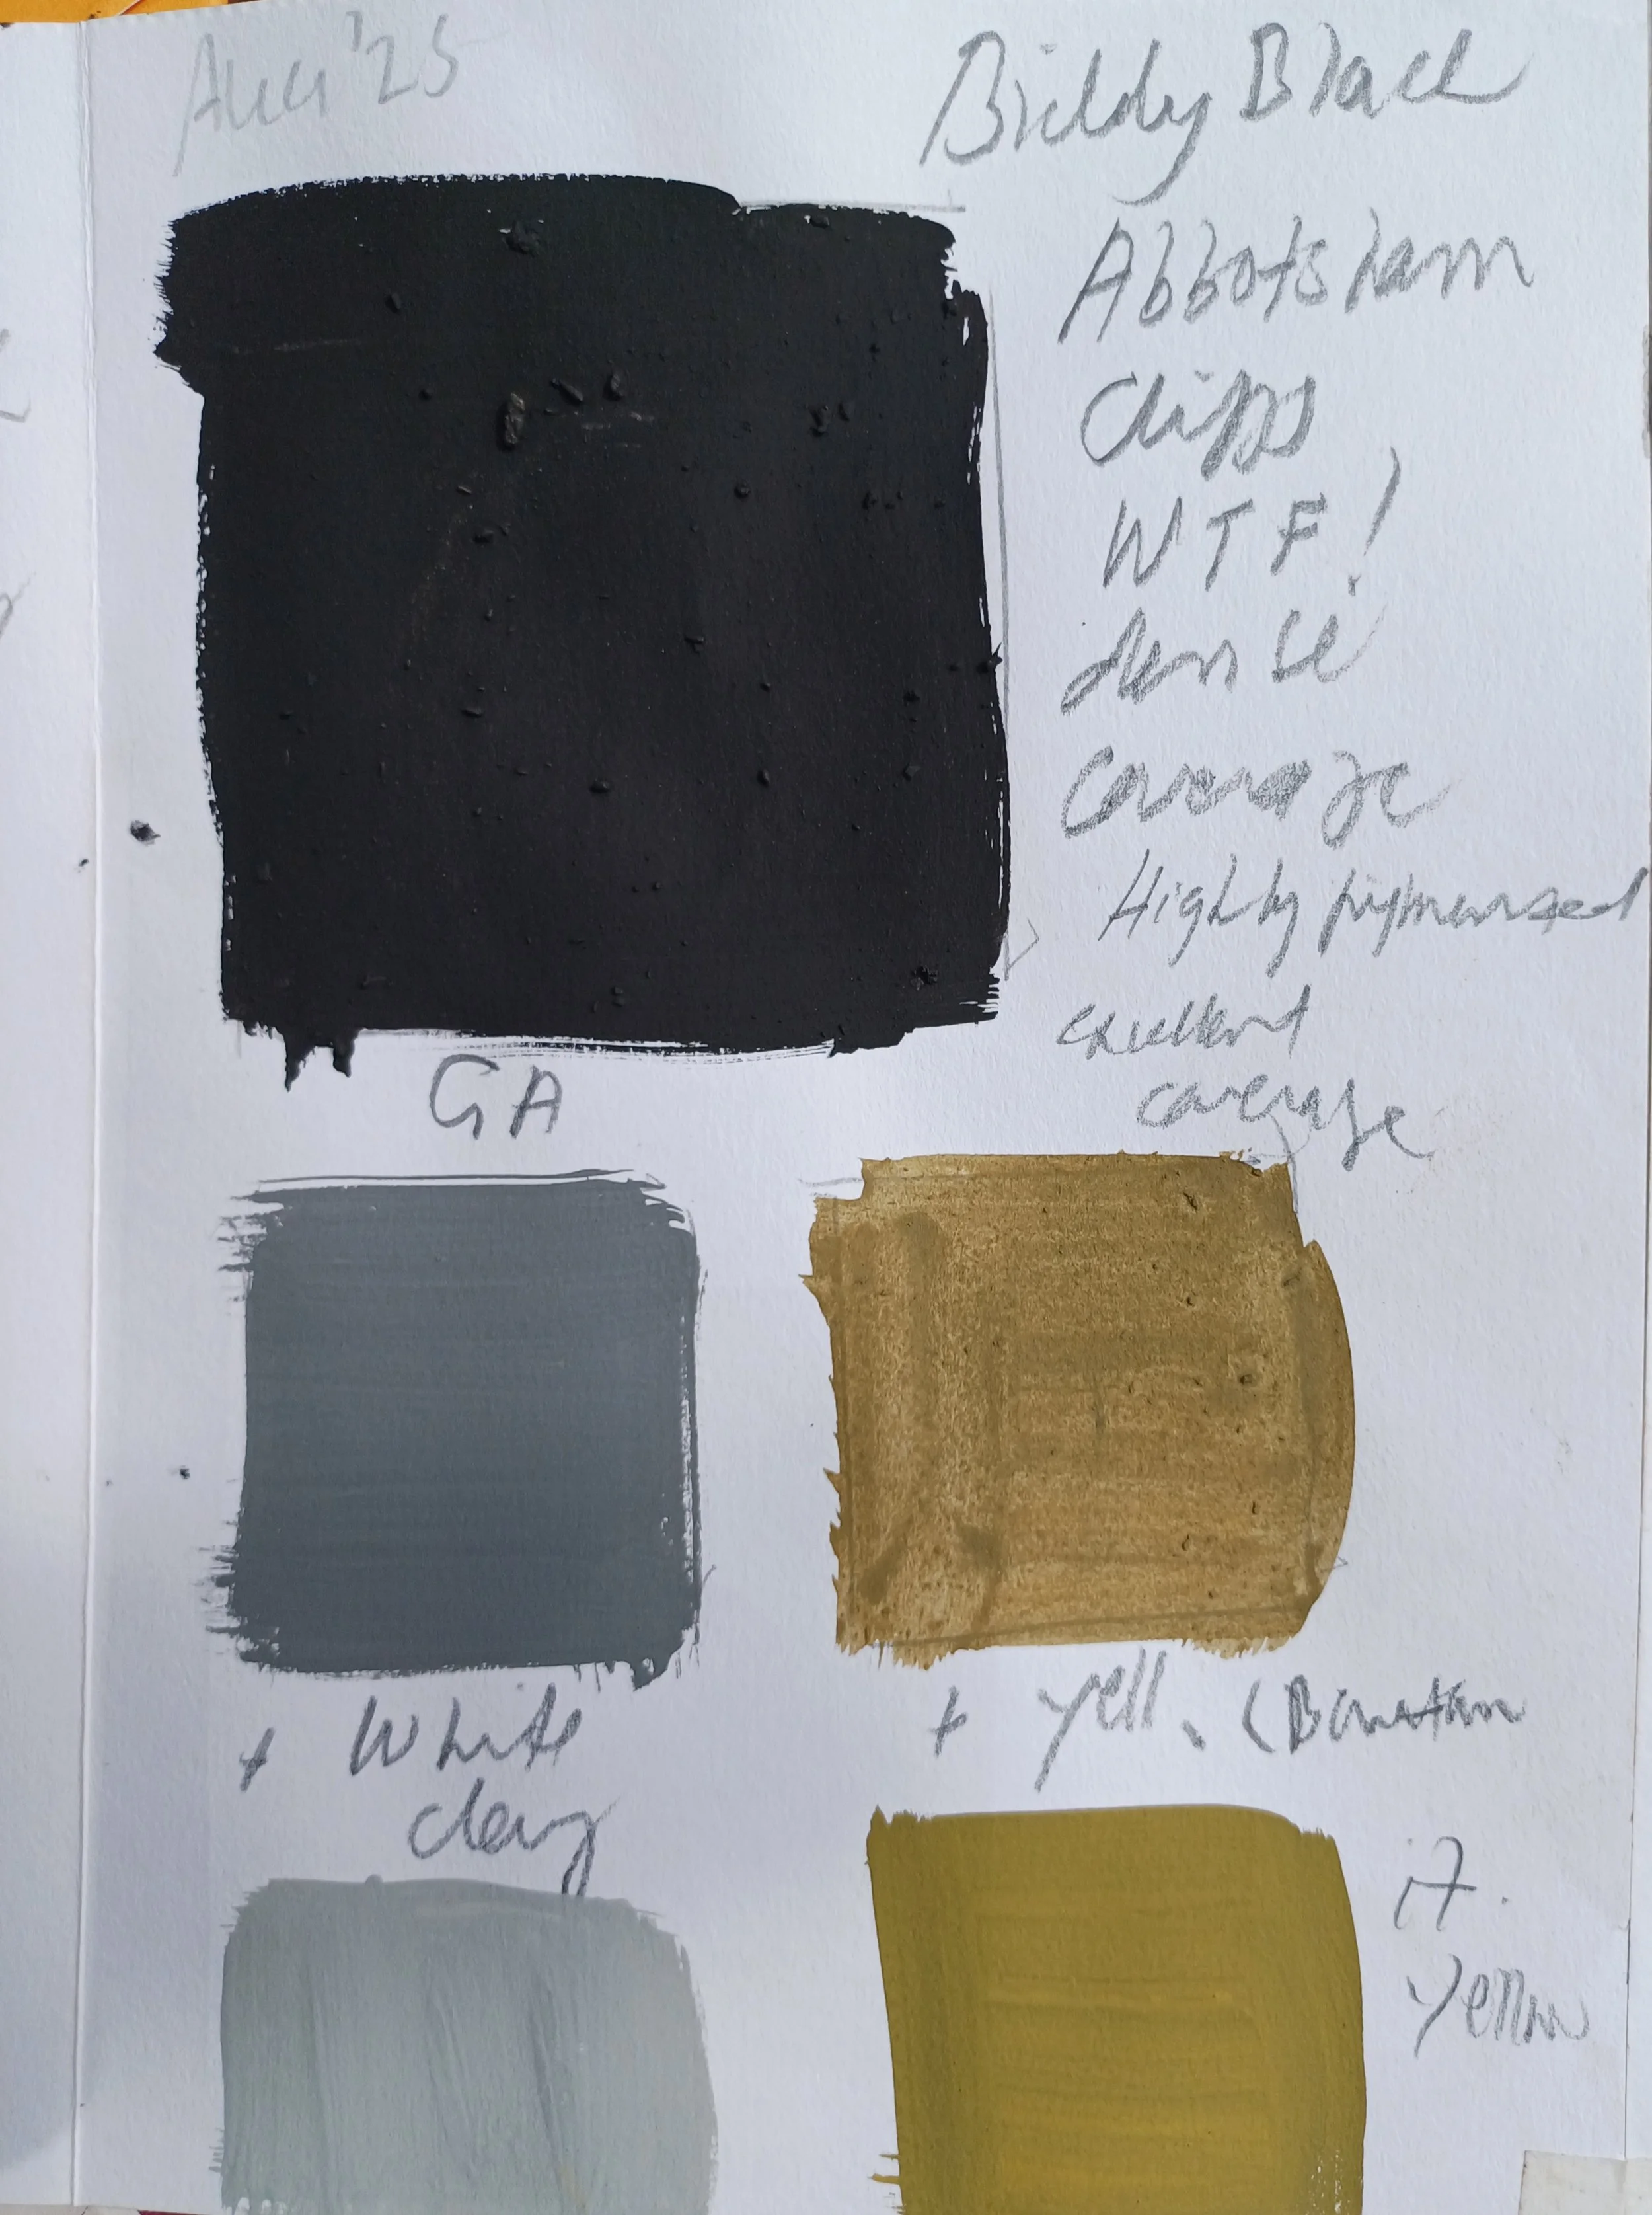 Aug '25
Biddy Black
Abbotsham
Cliffs
WTF!
dense
coverage
Highly pigmented
excellent
coverage
GA
+ White
clay
+ yell. (
it.
yellow